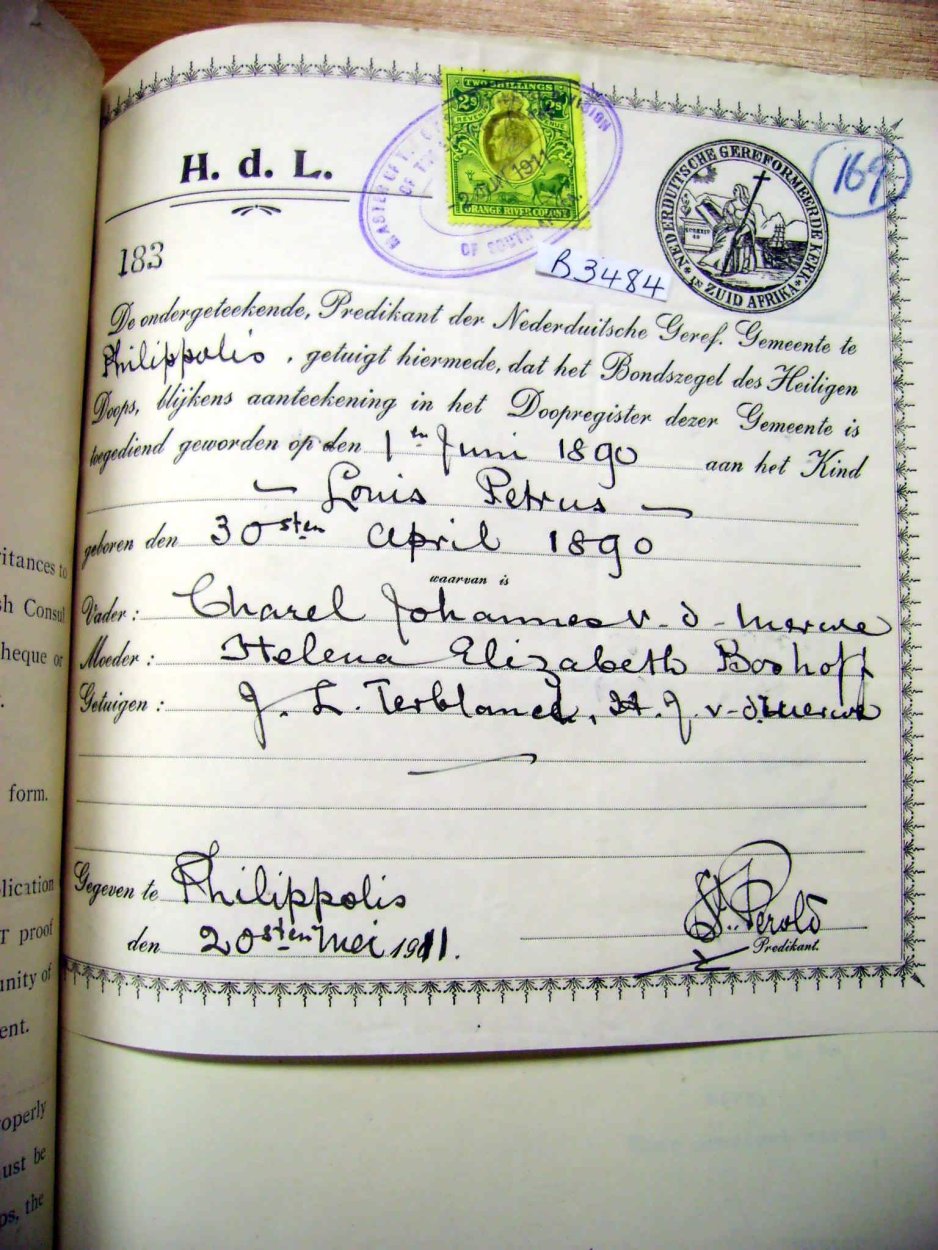 TWO SHILLINGS
2s 2s
REVENUE REVENUE
1911
ORANGE RIVER COLONY
MASTER OF THE
OF THE
OF SOUTH
H. d. L.
NEDERDUITSCHE GEREFORMEERDE KERK
IN ZUID AFRIKA
169
183
B3484
De ondergeteekende, Predikant der Nederduitsche Geref. Gemeente te
Philippolis, getuigt hiermede, dat het Bondszegel des Heiligen
Doops, blijkens aanteekening in het Doopregister dezer Gemeente is
toegediend geworden op den 1ten Juni 1890 aan het Kind
~ Louis Petrus ~
geboren den 30sten April 1890
waarvan is
Vader : Charel Johannes v. d. Merwe
Moeder : Helena Elizabeth Boshoff
Getuigen : J. L. Terblanch, H. J. v. d. Merwe
Gegeven te Philippolis
den 20sten Mei 1911.
Perold
Predikant.
ritances to
sh Consul
heque or
form.
lication
T proof
unity of
ent.
operly
ust be
ps, the